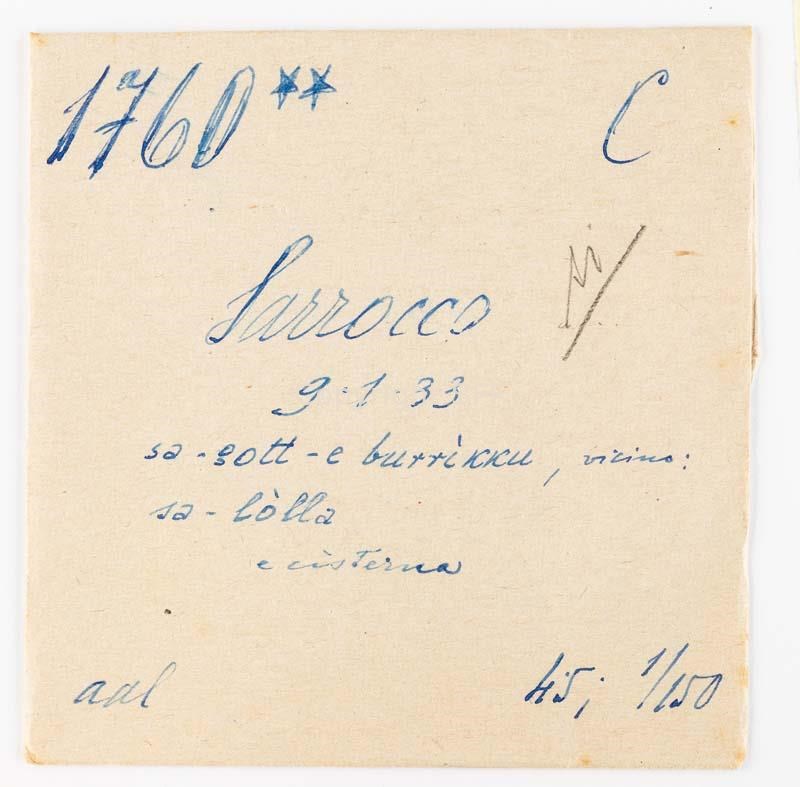 1760** C
Sarrocco
9-1-33
sa-gott-e burrìkku, vicino:
sa-lòlla
e cisterna
aal 45; 1/150